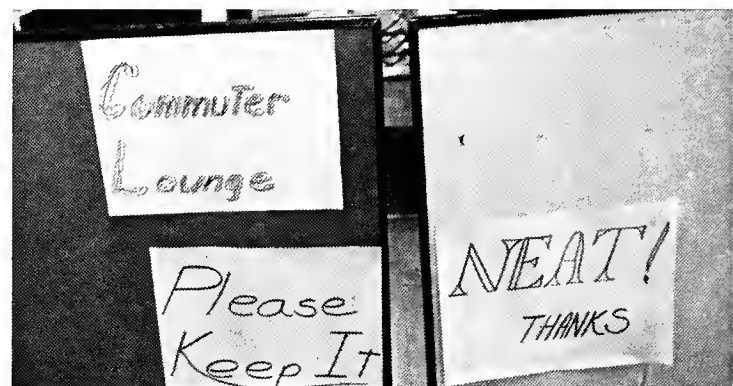 Commuter
Lounge
Please
Keep It
NEAT!
THANKS